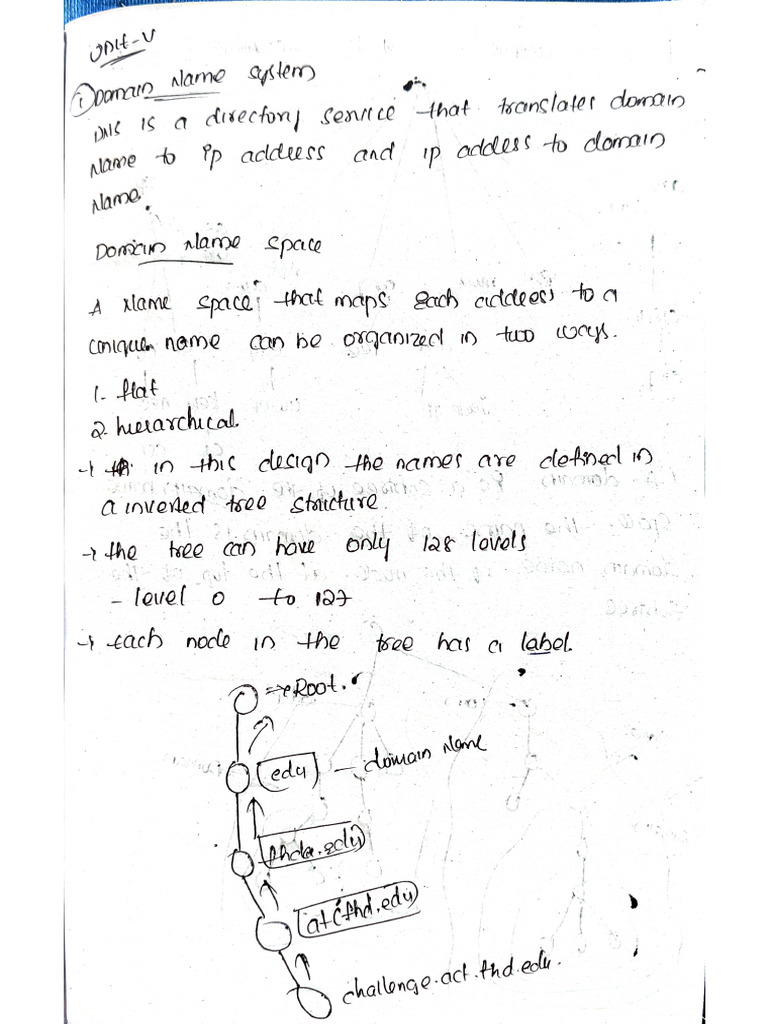 UNIT-V
① Domain Name System
DNS is a directory service that translates domain
Name to ip address and ip addess to domain
Name.
Domain Name space
A Name space that maps each addess to a
unique name can be organized in two ways.
1. flat
2. hierarchical.
→ in this design the names are defined in
a inverted tree structure.
→ the tree can have only 128 levels
- level 0 to 127
→ each node in the tree has a label.
⇒ Root.
edu — domain Name
.edu
atc.fhd.edu
challenge.act.fhd.edu.